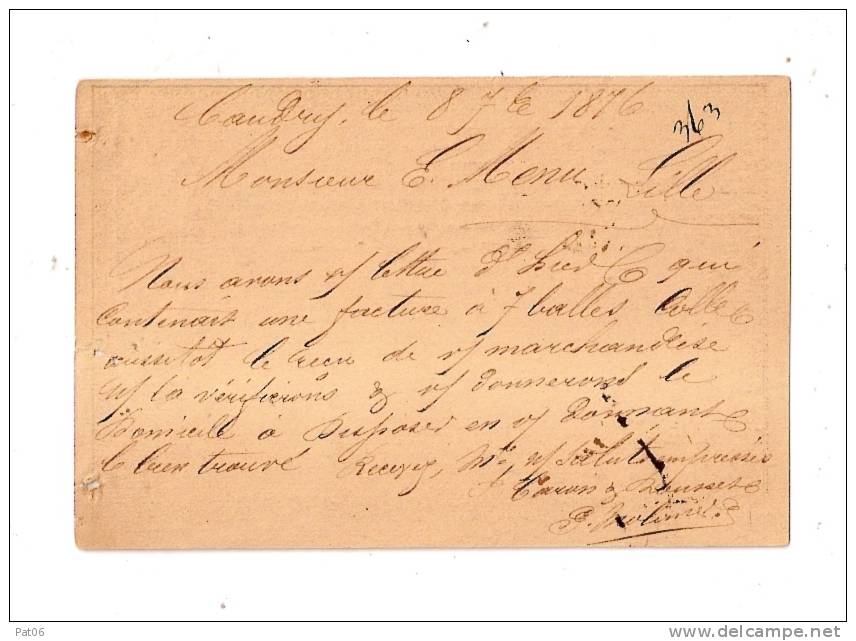 Caudry, le 8 7bre 1876
363
Monsieur E. Menu. Lille
Nous avons v/ lettre d'hier qui
contenait une facture à 7 balles Colle
aussitot le recu de v/ marchandise
n/ la vérifierons & v/ donnerons le
Domicile à Disposer en v/ Donnant
le bien trouvé Recevez, Mr, n/ saluts empressés
Caron &
Pat06
delcampe.net